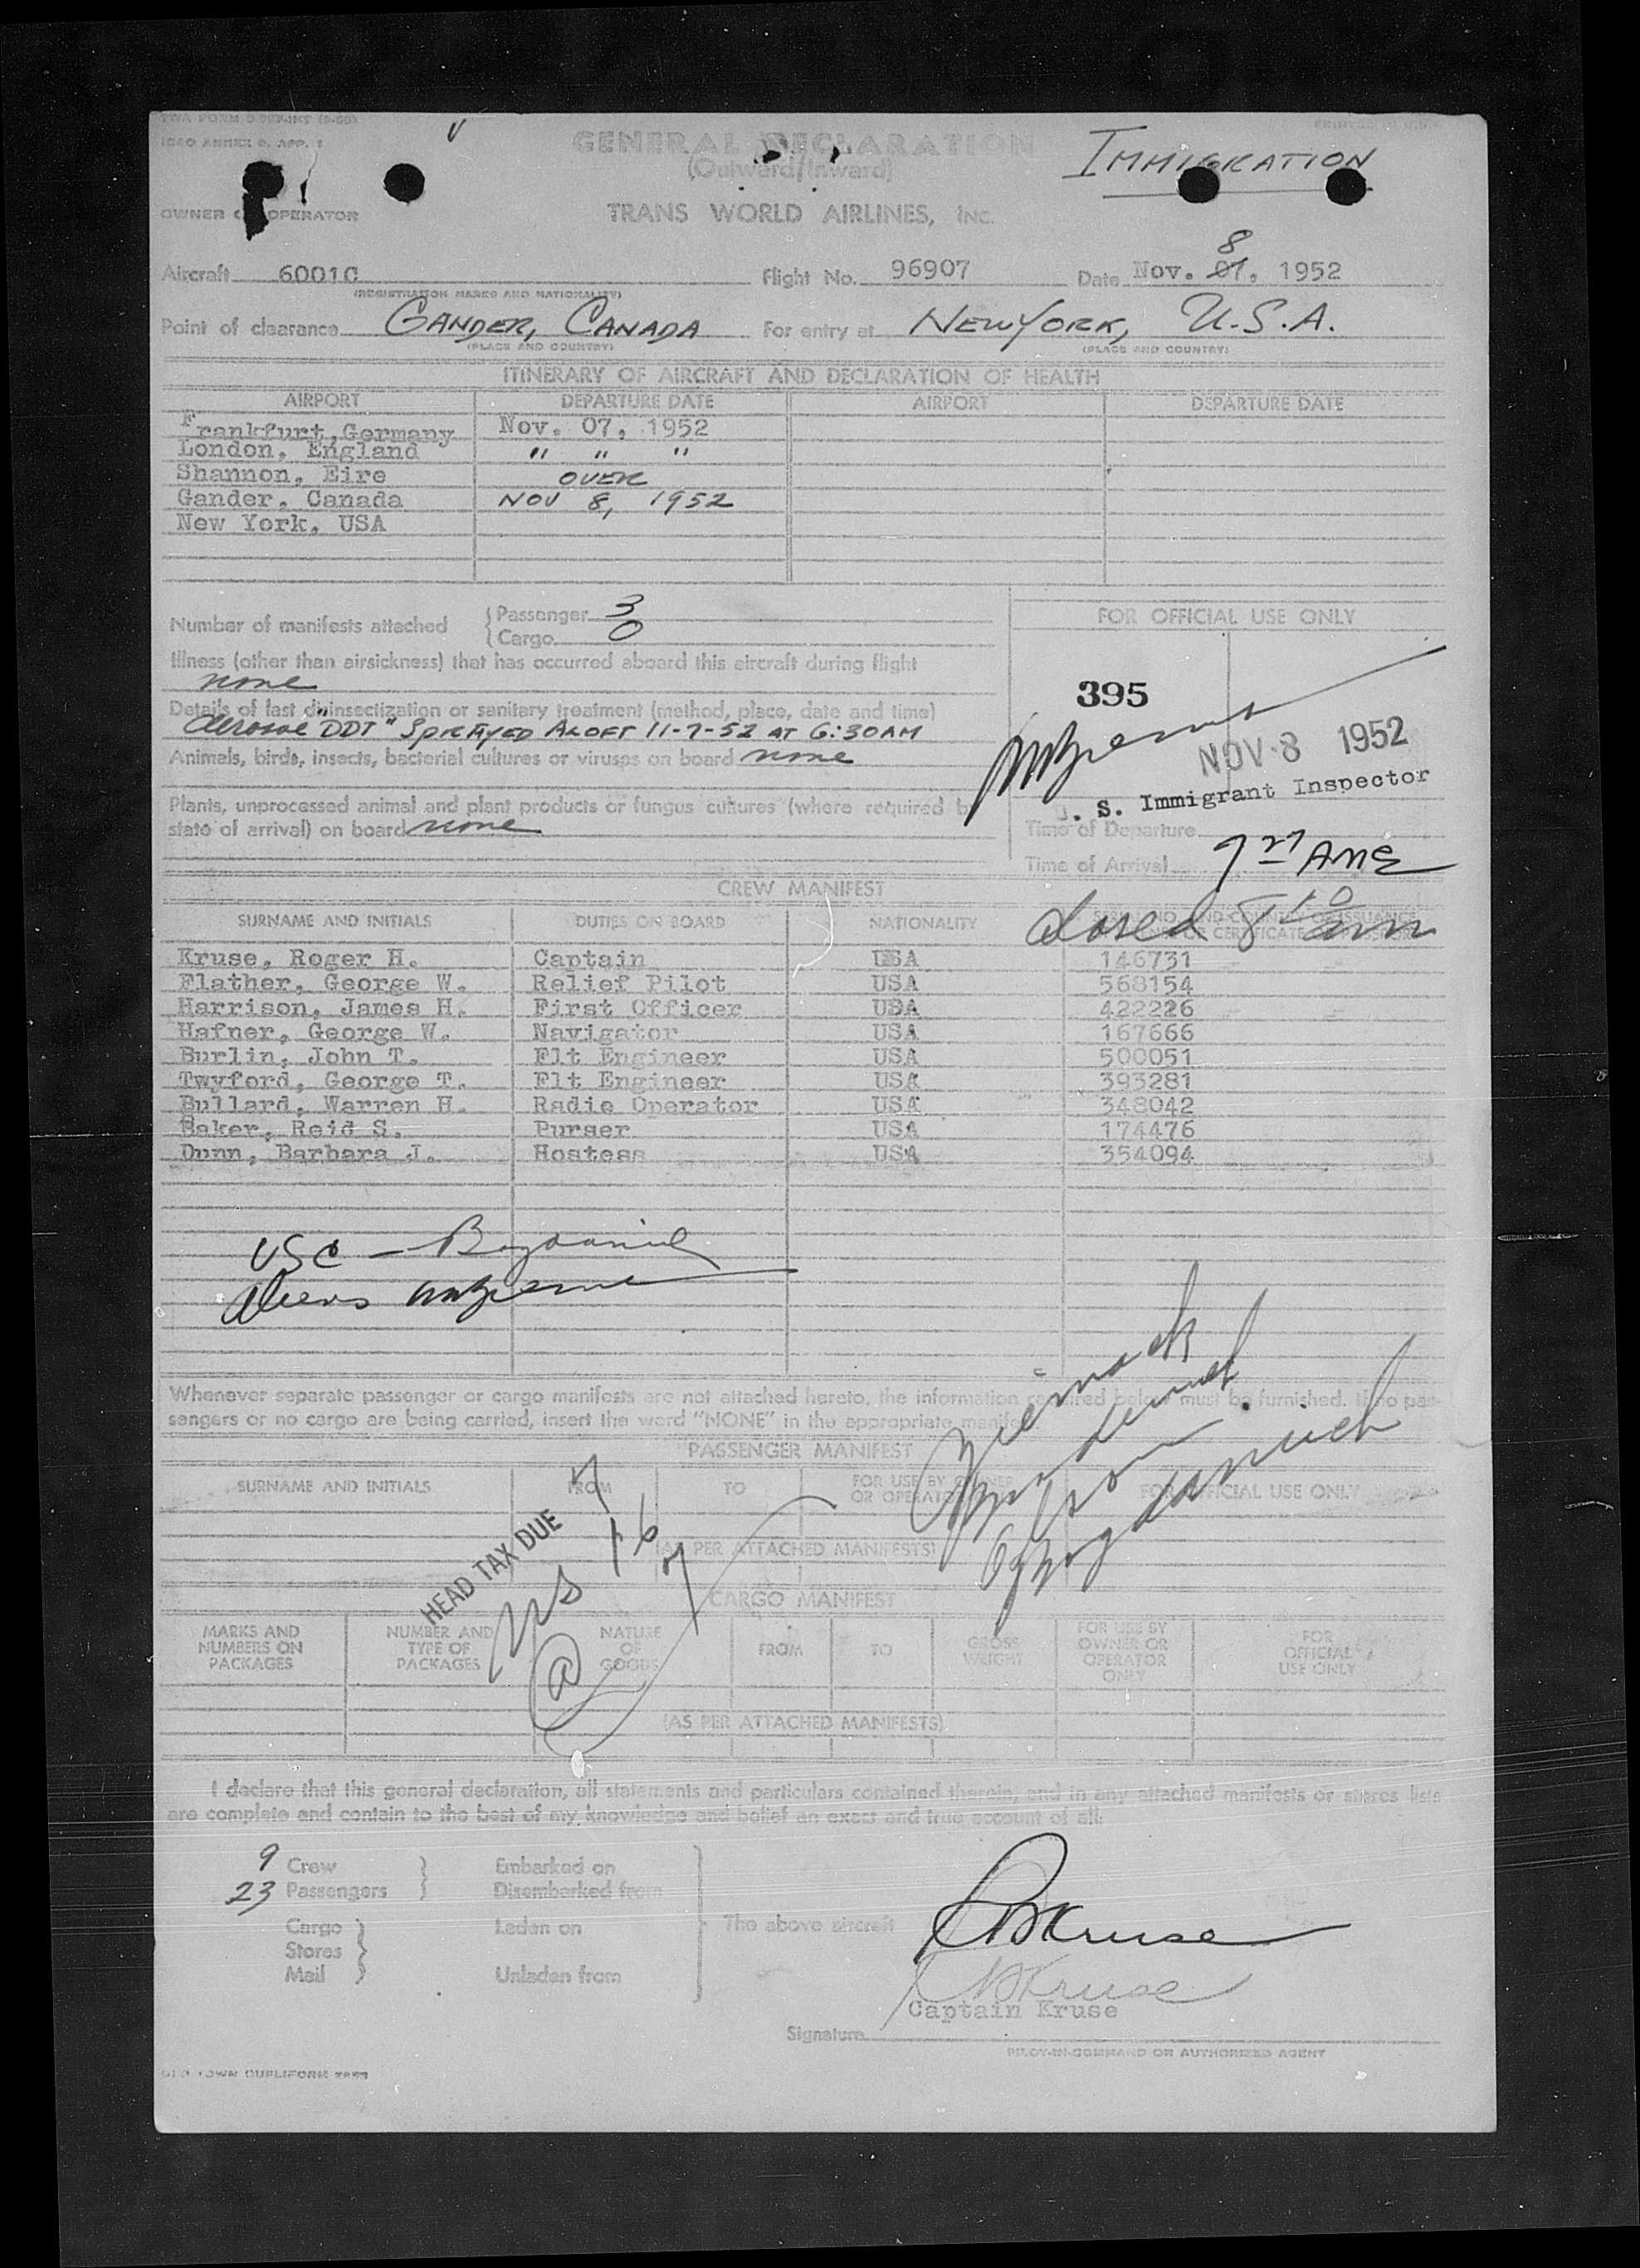 TWA FORM
ICAO ANNEX 9, APP. 1
GENERAL DECLARATION
(Outward/Inward)
IMMIGRATION
OWNER OR OPERATOR
TRANS WORLD AIRLINES, INC.
8
Aircraft 6001C Flight No. 96907 Date Nov. 07, 1952
(REGISTRATION MARKS AND NATIONALITY)
Point of clearance GANDER, CANADA For entry at NEW YORK, U.S.A.
(PLACE AND COUNTRY) (PLACE AND COUNTRY)
ITINERARY OF AIRCRAFT AND DECLARATION OF HEALTH
AIRPORT DEPARTURE DATE AIRPORT DEPARTURE DATE
Frankfurt, Germany Nov. 07, 1952
London, England " " "
Shannon, Eire OVER
Gander, Canada NOV 8, 1952
New York, USA
Number of manifests attached { Passenger 3
{ Cargo 0
FOR OFFICIAL USE ONLY
Illness (other than airsickness) that has occurred aboard this aircraft during flight
none
395
Details of last disinsectization or sanitary treatment (method, place, date and time)
Aerosol "DDT" SPRAYED ALOFT 11-7-52 AT 6:30AM
NOV 8 1952
Animals, birds, insects, bacterial cultures or viruses on board none
U. S. Immigrant Inspector
Plants, unprocessed animal and plant products or fungus cultures (where required by
state of arrival) on board none
Time of Departure
Time of Arrival 7 27 AM E
CREW MANIFEST
Closed 8 10 am
SURNAME AND INITIALS DUTIES ON BOARD NATIONALITY
Kruse, Roger H. Captain USA 146731
Flather, George W. Relief Pilot USA 568154
Harrison, James H. First Officer USA 422226
Hafner, George W. Navigator USA 167666
Burlin, John T. Flt Engineer USA 500051
Twyford, George T. Flt Engineer USA 393281
Bullard, Warren H. Radio Operator USA 348042
Baker, Reid S. Purser USA 174476
Dunn, Barbara J. Hostess USA 354094
USC -
Aliens
Whenever separate passenger or cargo manifests are not attached hereto, the information required below must be furnished. If no pas-
sengers or no cargo are being carried, insert the word "NONE" in the appropriate manifest.
PASSENGER MANIFEST
SURNAME AND INITIALS FROM TO FOR USE BY OWNER OR OPERATOR FOR OFFICIAL USE ONLY
HEAD TAX DUE
(AS PER ATTACHED MANIFESTS)
CARGO MANIFEST
MARKS AND NUMBERS ON PACKAGES NUMBER AND TYPE OF PACKAGES NATURE OF GOODS FROM TO GROSS WEIGHT FOR USE BY OWNER OR OPERATOR ONLY FOR OFFICIAL USE ONLY
(AS PER ATTACHED MANIFESTS)
I declare that this general declaration, all statements and particulars contained therein, and in any attached manifests or stores lists
are complete and contain to the best of my knowledge and belief an exact and true account of all:
9 Crew } Embarked on
23 Passengers } Disembarked from
Cargo } Laden on The above aircraft
Stores }
Mail } Unladen from
Kruse
Kruse
Captain Kruse
Signature
PILOT-IN-COMMAND OR AUTHORIZED AGENT